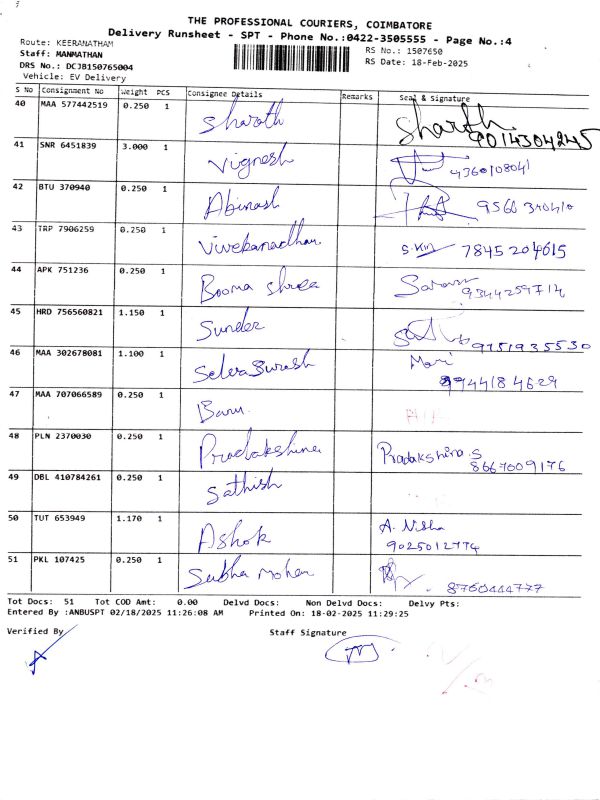 THE PROFESSIONAL COURIERS, COIMBATORE
Delivery Runsheet - SPT - Phone No.:0422-3505555 - Page No.:4
Route: KEERANATHAM
Staff: MANMATHAN
DRS No.: DCJB150765004
Vehicle: EV Delivery
RS No.: 1507650
RS Date: 18-Feb-2025
S No Consignment No Weight PCS Consignee Details Remarks Seal & Signature
40 MAA 577442519 0.250 1 Sharoth Sharoth 9014304245
41 SNR 6451839 3.000 1 Vignesh 4360108041
42 BTU 370940 0.250 1 Abinash 9566
43 TRP 7906259 0.250 1 Vivekanadhan 7845204615
44 APK 751236 0.250 1 Booma shree Saran 9344259714
45 HRD 756560821 1.150 1 Sunder 9751935530
46 MAA 302678081 1.100 1 Selva Surash Mari 9944184629
47 MAA 707066589 0.250 1 Banu
48 PLN 2370030 0.250 1 Pradakshina Pradakshina S
8667009176
49 DBL 410784261 0.250 1 Sathish
50 TUT 653949 1.170 1 Ashok A. Nisha
9025012774
51 PKL 107425 0.250 1 Subha Mohan 8760444777
Tot Docs: 51 Tot COD Amt: 0.00 Delvd Docs: Non Delvd Docs: Delvy Pts:
Entered By :ANBUSPT 02/18/2025 11:26:08 AM Printed On: 18-02-2025 11:29:25
Verified By Staff Signature